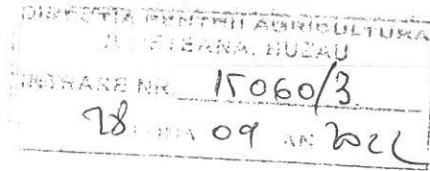 DIRECTIA PENTRU AGRICULTURA
JUDETEANA, BUZAU
INTRARE NR. 15060/3
28 LUNA 09 AN 2022